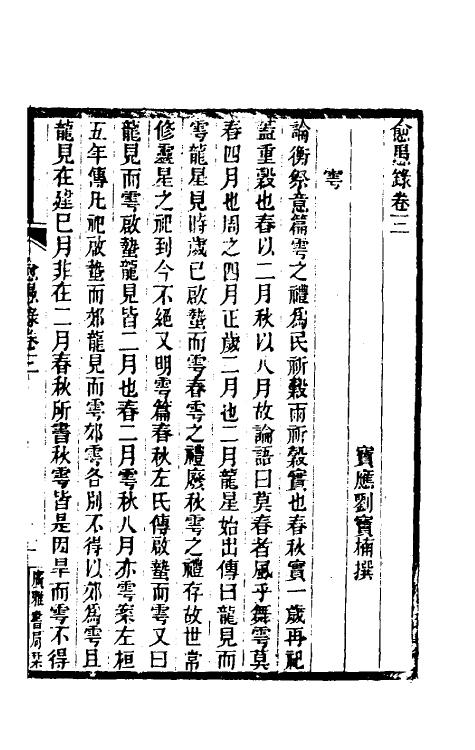 愈愚錄卷三
寶應劉寶楠撰
雩
論衡祭意篇雩之禮為民祈穀雨祈穀實也春秋實一歲再祀
蓋重穀也春以二月秋以八月故論語曰莫春者風乎舞雩莫
春四月也周之四月正歲二月也二月龍星始出傳曰龍見而
雩龍星見時歲已啟蟄而雩春雩之禮廢秋雩之禮存故世常
修靈星之祀到今不絕又明雩篇春秋左氏傳啟蟄而雩又曰
龍見而雩啟蟄龍見皆二月也春二月雩秋八月亦雩案左桓
五年傳凡祀啟蟄而郊龍見而雩郊雩各別不得以郊為雩且
龍見在建巳月非在二月春秋所書秋雩皆是因旱而雩不得
愈愚錄卷三
一
廣雅書局栞